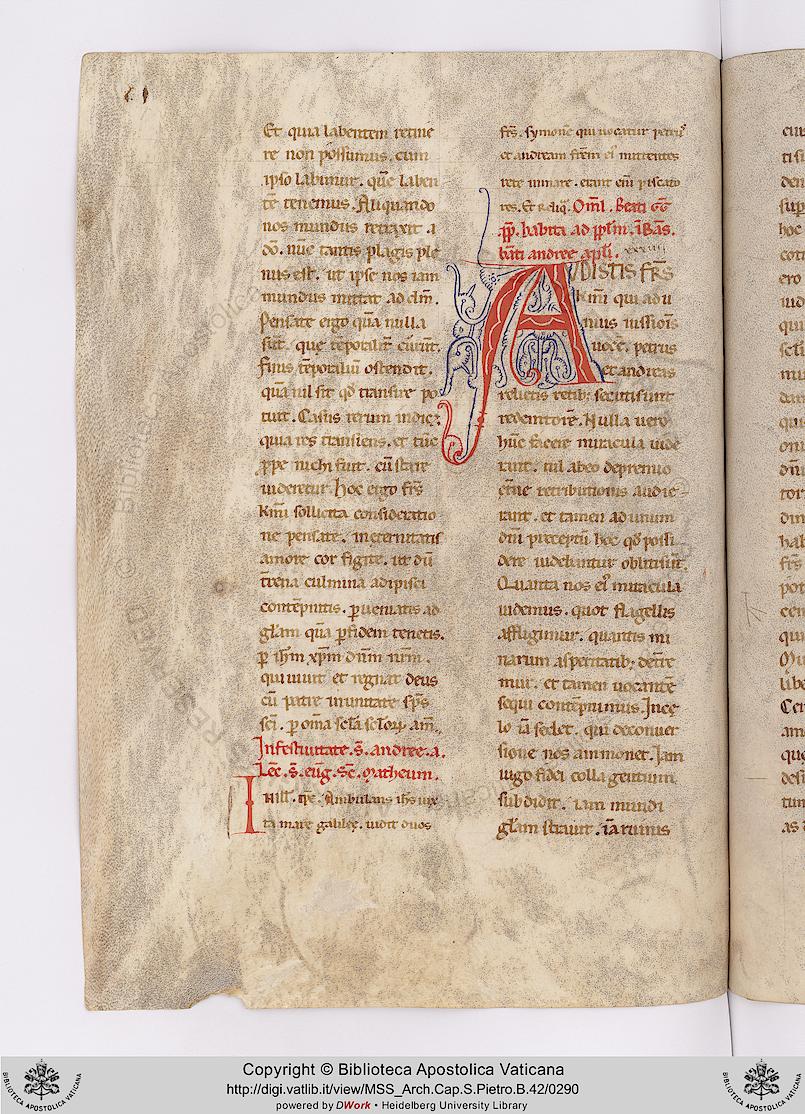 Et quia labentem retine
re non possumus. cum
ipso labimur. quē laben
tē tenemus. Aliquando
nos mundus retraxit a
dō. nūc tantis plagis ple
nus est. ut ipse nos iam
mundus mittat ad dm̄.
Pensate ergo qm̄ nulla
sūt. que tēporalit̄ cūrūt.
Finis tēporaliū ostendit.
quā nil sit qđ transire po
tuit. Casus rerum indicat
quia res transiens. et tūc
ꝓpe nichil fuit. cū stare
uideretur. hoc ergo frs̄
kmī sollicita consideratio
ne pensate. in eternitatis
amore cor figite. ut dū
t̄rena culmina adipisci
contēpnitis. ꝑueniatis ad
glām quā ꝑ fidem tenetis.
ꝑ ihm̄ xp̄m dn̄m nr̄m.
qui uiuit et regnat deus
cū patre in unitate sp̄s
sc̄i. ꝑ om̄a sc̄la sc̄loꝝ am̄.
In festiuitate. s̄. andree. a.
Lēc. s̄. eūg. sc̄. Matheum.
IN ill̄. tp̄e. Ambulans ihs̄ iux
ta mare galileę. uidit duos
frs̄. symonē qui uocatur petrus
et andream frēm ei' mittentes
rete in mare. erant eni̅ piscato
res. Et reliq̄. Oml̄. Beati GG
ꝑꝑ. habita ad ꝑꝑlm̄. ī Bās.
bāti andree apl̄i.
AVDISTIS FRS̄
kmī qui ad u
nius iussiōis
uocē. petrus
et andreas
relictis retib; secuti sunt
redemtorē. Nulla uero
hūc facere miracula uide
rant. nil ab eo de premio
et̄ne retributionis audie
rant. et tamen ad unum
dn̄i preceptū hoc qđ possi
dere uidebantur obliti sūt.
Quanta nos ei' miracula
uidemus. quot flagellis
affligimur. quantis mi
narum asperitatib; deter̄re
mur. et tamen uocantē
sequi contēpnimus. In cę
lo iā sedet. qui de conuer
sione nos ammonet. Iam
iugo fidei colla gentium
subdidit. iam mundi
glām strauit. iā ruinis
Copyright © Biblioteca Apostolica Vaticana
http://digi.vatlib.it/view/MSS_Arch.Cap.S.Pietro.B.42/0290
powered by DWork • Heidelberg University Library
BIBLIOTECA APOSTOLICA VATICANA
BIBLIOTECA APOSTOLICA VATICANA